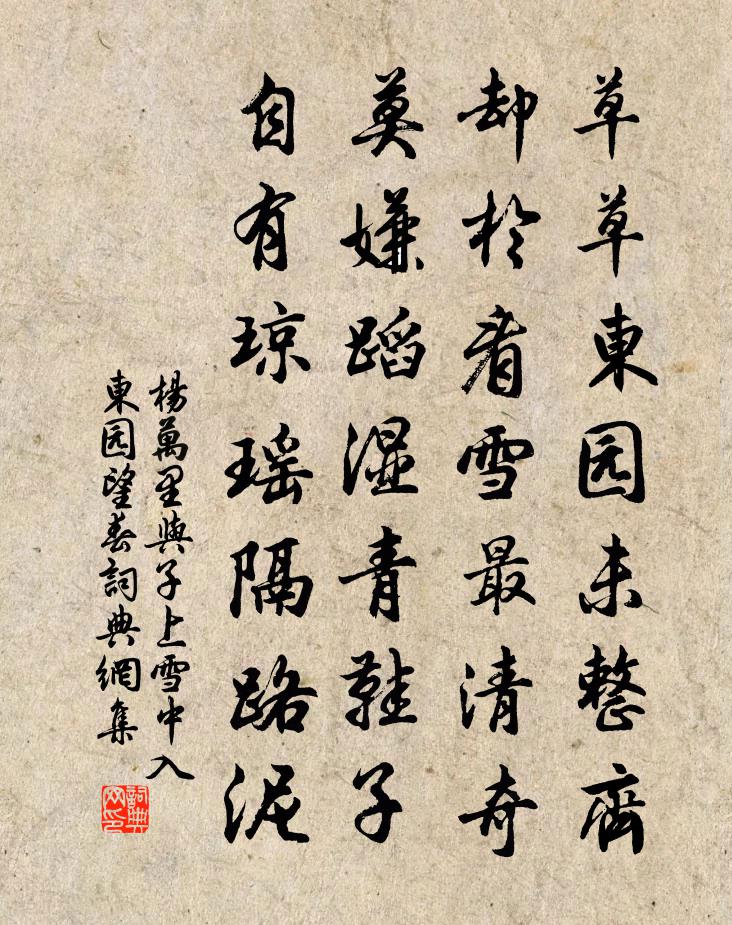 草草東园未整齊
却於看雪最清奇
莫嫌蹈湿青鞋子
自有琼瑶隔路泥
楊萬里與子上雪中入
東园望春詞典網集
詞典网印